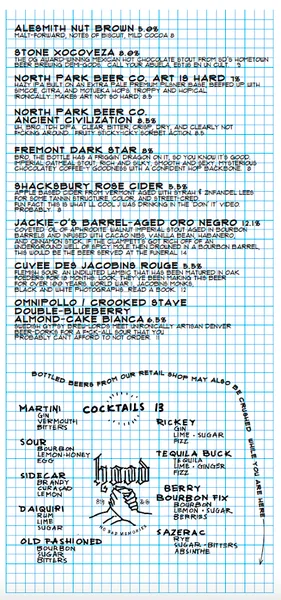 ALESMITH NUT BROWN 5.0%
MALT-FORWARD, NOTES OF BISCUIT, MILD COCOA 8
STONE XOCOVEZA 8.0%
THE OG AWARD-WINNING MEXICAN HOT CHOCOLATE STOUT FROM SD'S HOMETOWN
BEER BREWING DEMI-GODS. CALL YOUR ABUELA, EST IS EN UN CULT. 9
NORTH PARK BEER CO. ART IS HARD 7%
HAZY IPA BUILT ON AN EXTRA PALE PREMIUM PILSNER BASE, BEEFED UP WITH
SIMCOE, CITRA, AND MOTUEKA HOPS. TROPPY AND HOPICAL.
IRONICALLY...MAKES ART NOT SO HARD. 8.5
NORTH PARK BEER CO.
ANCIENT CIVILIZATION 8.5%
UH, BRO...TDH DIPA. CLEAR, BITTER, CRISP, DRY, AND CLEARLY NOT
F*CKING AROUND. FRUITY STICKY-ICKY SORBET ACTION. 8.5
FREMONT DARK STAR 8%
BRO, THE BOTTLE HAS A FRIGGIN' DRAGON ON IT, SO YOU KNOW IT'S GOOD.
IMPERIAL OATMEAL STOUT, RICH AND SILKY, SMOOTH AND SEXY, MYSTERIOUS
CHOCOLATEY COFFEE-Y GOODNESS WITH A CONFIDENT HOP BACKBONE. 8
SHACKSBURY ROSE CIDER 5.5%
APPLE BASED CIDER FROM VERMONT AGED WITH SYRAH & ZINFANDEL LEES
FOR SOME TANNIN STRUCTURE, COLOR, AND STREET-CRED.
FUN FACT: THIS IS WHAT LL COOL J WAS DRINKING IN THE 'DOIN' IT' VIDEO.
PROBABLY. 8
JACKIE-O'S BARREL-AGED ORO NEGRO 12.1%
COVETED OL' OF APHRODITE WALNUT IMPERIAL STOUT AGED IN BOURBON
BARRELS AND INFUSED WITH CACAO NIBS, VANILLA BEAN, HABANERO,
AND CINNAMON STICK.
UNDERGROUND WELL OF SPICY MOLE THEN DROWNED IN A BOURBON BARREL,
THIS WOULD BE THE BEER SERVED AT THE FUNERAL. 14
CUVEE DES JACOBINS ROUGE 5.5%
FLEMISH SOUR. AN UNDILUTED LAMBIC THAT HAS BEEN MATURED IN OAK
FOEDERS FOR 18 MONTHS. LOOK, THEY'VE BEEN MAKING THIS BEER
FOR OVER 100 YEARS. WORLD WAR I, JACOBINS, MONKS,
BLACK AND WHITE PHOTOGRAPHS. READ A BOOK. 12
OMNIPOLLO / CROOKED STAVE
DOUBLE-BLUEBERRY
ALMOND-CAKE BIANCA 6.5%
SWEDISH GYPSY BREW-LORDS MEET UNIRONICALLY ARTISAN DENVER
BEER-DORKS FOR A F*CK-ALL SOUR THAT YOU
PROBABLY CAN'T AFFORD TO NOT ORDER. 11
BOTTLED BEERS FROM OUR RETAIL SHOP MAY ALSO BE CRUSHED WHILE YOU ARE HERE
COCKTAILS 13
MARTINI
GIN
VERMOUTH
BITTERS
SOUR
BOURBON
LEMON·HONEY
EGG
SIDECAR
BRANDY
CURAÇAO
LEMON
DAIQUIRI
RUM
LIME
SUGAR
OLD FASHIONED
BOURBON
SUGAR
BITTERS
hood
NO BAD MEMORIES
RICKEY
GIN
LIME · SUGAR
FIZZ
TEQUILA BUCK
TEQUILA
LIME · GINGER
FIZZ
BERRY
BOURBON FIX
BOURBON
LEMON · SUGAR
BERRIES
SAZERAC
RYE
SUGAR · BITTERS
ABSINTHE